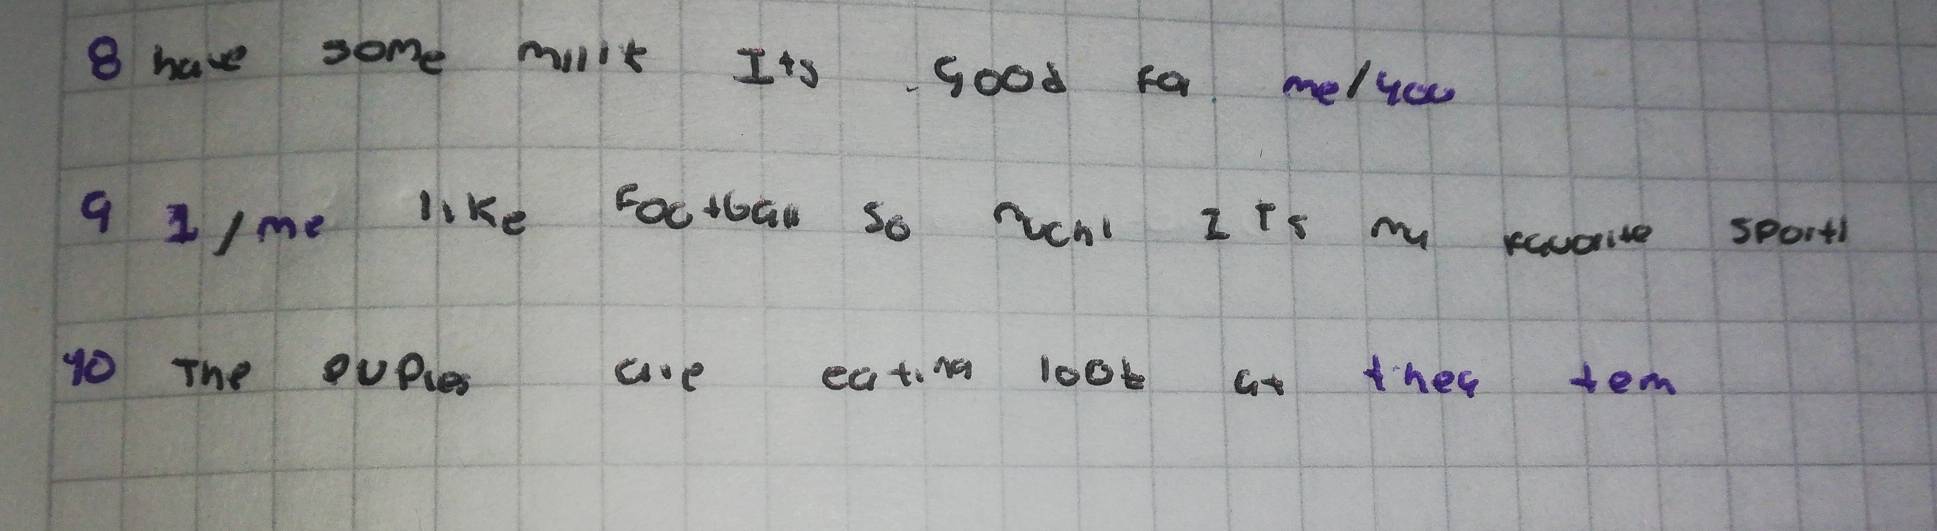 8 have some millk Its good fo me/you
9 I/me like Football so much! ITs my favorite sport!
10 The pupies are eating look at they tem